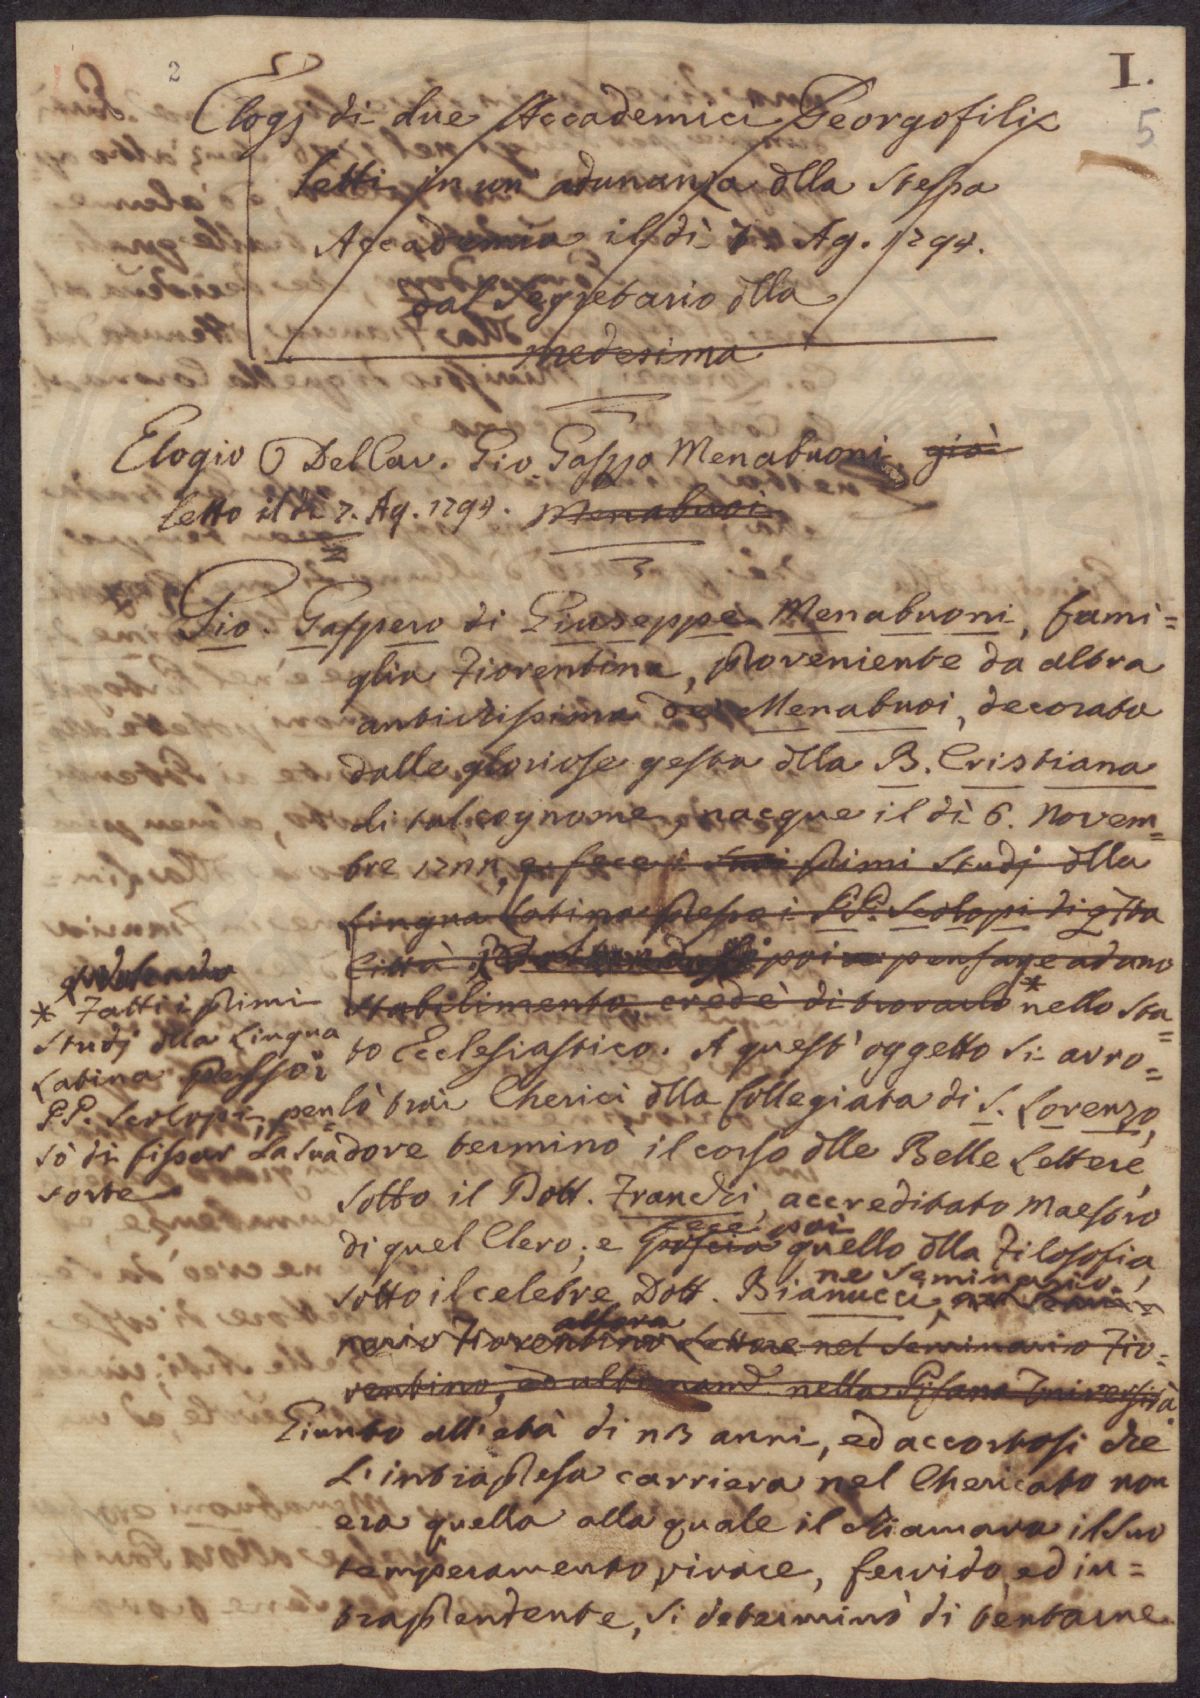 2
I.
5
Elogj di due Accademici Georgofili
letti in un' adunanza dlla stessa
Accademia il dì 7. Ag. 1794.
dal Segretario dlla
medesima
Elogio Del Cav. Gio. Gasp.o Menabuoni, già
letto il dì 7. Ag. 1794. Menabuoi
Gio. Gaspero di Giuseppe Menabuoni, fami=
glia Fiorentina, proveniente da altra
antichissima dei Menabuoi, decorata
dalle gloriose gesta dlla B. Cristiana
di tal cognome, nacque il dì 6. Novem=
bre 17, e fece i suoi primi studj dlla
lingua latina presso i PP. Scolopi di qsta
Città poi pensare ad uno
stabilimento, credè di trovarlo * nello sta=
to Ecclesiastico. A quest' oggetto si arro=
lò trai Cherici dlla Collegiata di S. Lorenzo,
dove terminò il corso dlle Belle Lettere,
sotto il Dott. Franchi, accreditato Maestro
di quel Clero; e poscia fece poi quello dlla Filosofia,
sotto il celebre Dott. Bianucci, nel Semi=
ne Seminario
nario Fiorentino allora Lettore nel Seminario Fio=
rentino, ed ultimam. nella Pisana Università
Giunto all'età di 23 anni, ed accortosi che
l'intrapresa carriera nel Chericato non
era quella alla quale il chiamava il suo
temperamento vivace, fervido, ed in=
traprendente, si determinò di tentarne
* Fatti i primi
studj dlla Lingua
Latina presso i
PP. Scolopi, pen
sò di fissar la sua
sorte